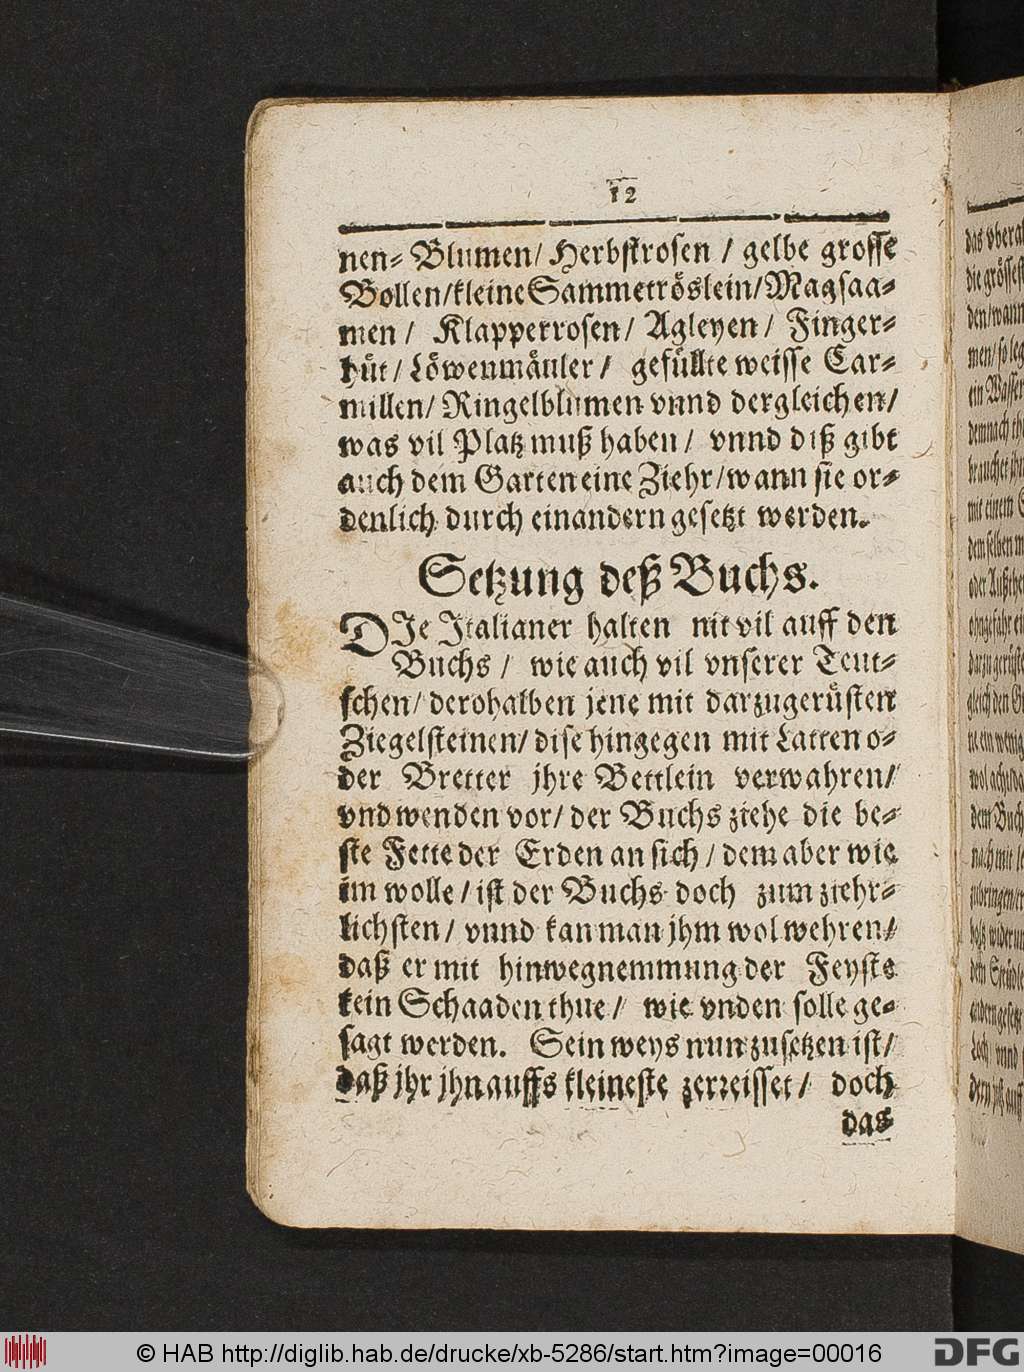 12
nen- Blumen/ Herbstrosen / gelbe grosse
Bollen/kleine Sammetröslein/Magsaa-
men / Klapperrosen/ Agleyen / Finger-
hüt / Löwenmäuler / gefüllte weisse Car-
millen/ Ringelblumen vnnd dergleichen/
was vil Platz muß haben / vnnd diß gibt
auch dem Garten eine Ziehr/wann sie or-
denlich durch einandern gesetzt werden.
Setzung deß Buchs.
DIe Italianer halten nit vil auff den
Buchs / wie auch vil vnserer Teut-
schen/ derohalben jene mit darzugerüsten
Ziegelsteinen/ dise hingegen mit Latten o-
der Bretter jhre Bettlein verwahren/
vnd wenden vor/ der Buchs ziehe die be-
ste Fette der Erden an sich / dem aber wie
im wolle / ist der Buchs doch zum ziehr-
lichsten / vnnd kan man jhm wol wehren/
daß er mit hinwegnemmung der Feyste
kein Schaaden thue / wie vnden solle ge-
sagt werden. Sein weys nun zusetzen ist/
daß jhr jhn auffs kleineste zerreisset / doch
das
das vbera
die grössest
den/wann
men/so leg
ein Wasser
demnach
brauchet
mit einem
demselben
oder
ohngefahr
gleich den
ein wenig
dem Buch
nach mit
© HAB http://diglib.hab.de/drucke/xb-5286/start.htm?image=00016
DFG